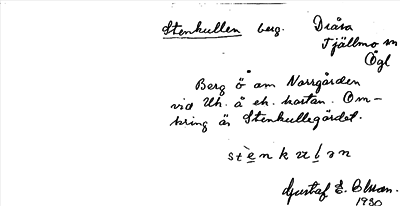 Stenkullen berg. Dråsa
Tjällmo sn
Ögl
Berg ö om Norrgården
vid Uh. å ek. kartan. Om-
kring är Stenkullegärdet.
stènkulən
Gustaf E. Olsson.
1930